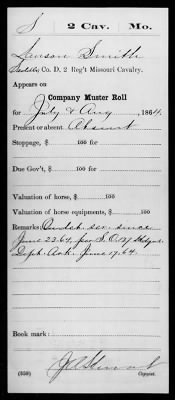 S | 2 Cav. | Mo.
Lanson Smith
Saddler, Co. D, 2 Reg't Missouri Cavalry.
Appears on
Company Muster Roll
for July & Aug, 1864.
Present or absent Absent
Stoppage, $ 100 for
Due Gov't, $ 100 for
Valuation of horse, $ 100
Valuation of horse equipments, $ 100
Remarks: Detch. ser. since
June 23.64, per S.O. 127 Hdqrs.
Dept. Ark. June 17.64.
Book mark:
(358) Copyist.